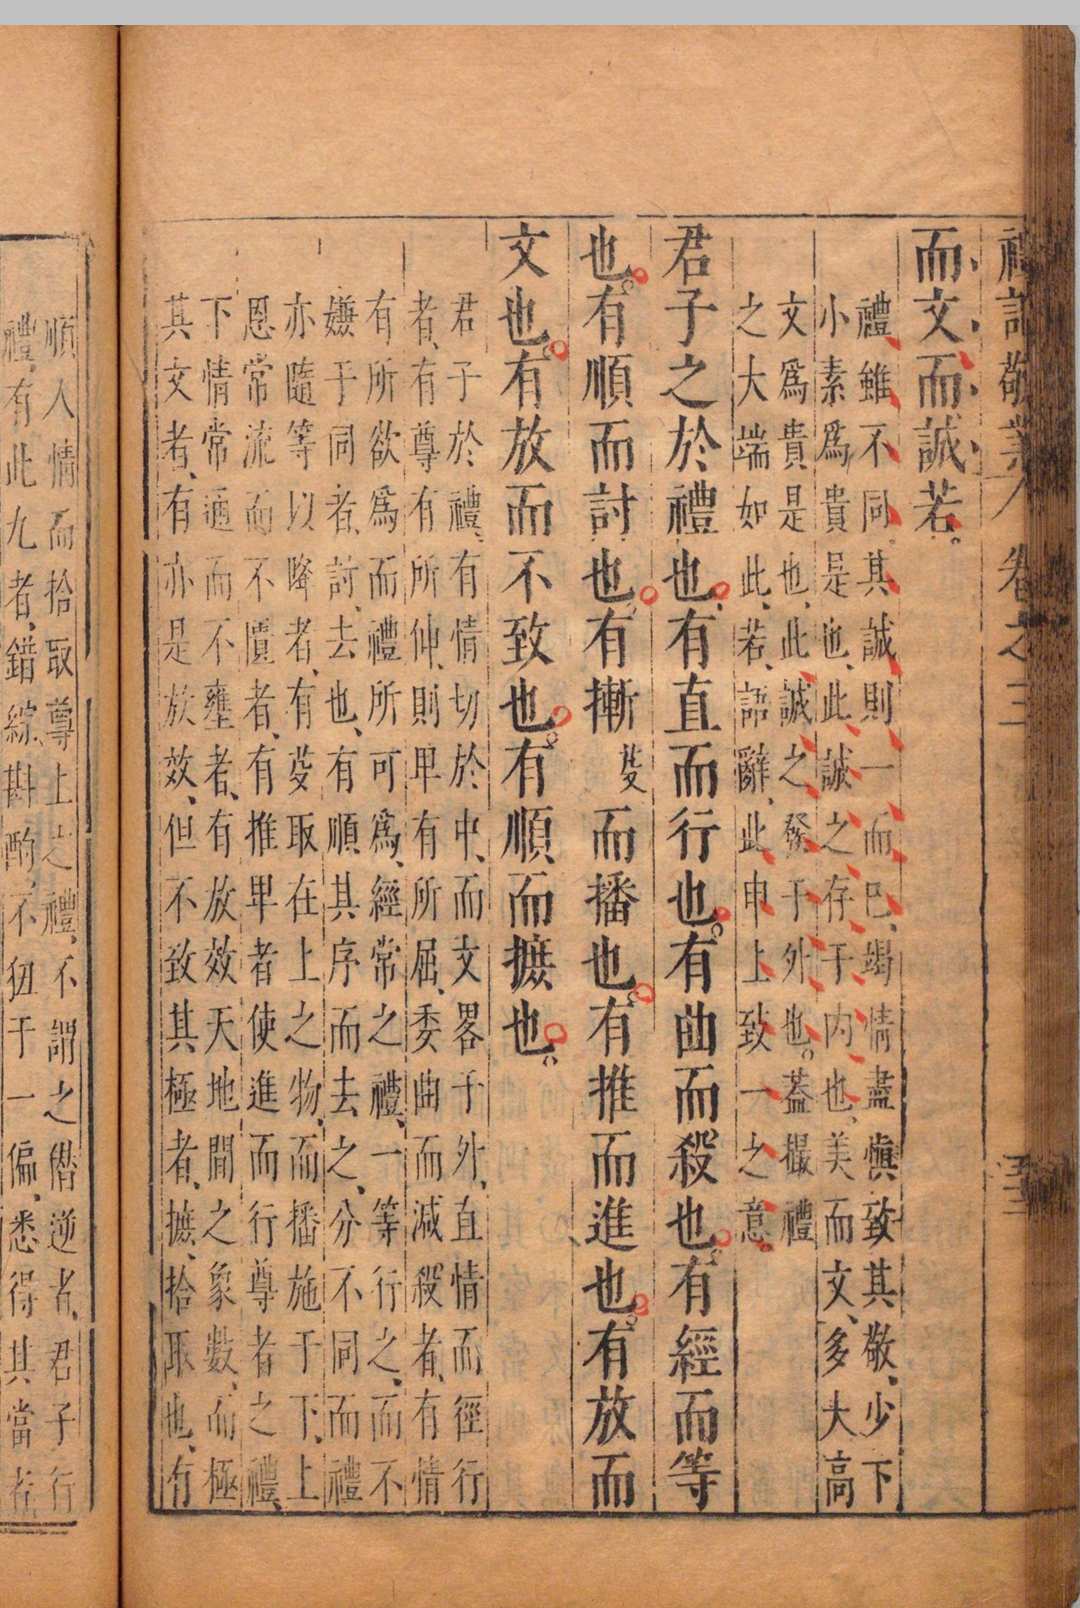 禮記敬業 卷之三
而文而誠若
禮雖不同其誠則一而已竭情盡愼致其敬少下
小素爲貴是也此誠之存于內也美而文多大高
文爲貴是也此誠之發于外也蓋撮禮
之大端如此若語辭此申上致一之意
君子之於禮也有直而行也有曲而殺也有經而等
也有順而討也有摲芟而播也有推而進也有放而
文也有放而不致也有順而摭也
君子於禮有情切於中而文畧于外直情而徑行
者有尊有所伸則卑有所屈委曲而減殺者有情
有所欲爲而禮所可爲經常之禮一等行之而不
嫌于同者討去也有順其序而去之分不同而禮
亦隨等以降者有芟取在上之物而播施于下上
恩常流而不匱者有推卑者使進而行尊者之禮
下情常通而不壅者有放效天地間之象數而極
其文者有亦是放效但不致其極者摭拾取也有
順人情而拾取尊上之禮不謂之僭逆者君子行
禮有此九者錯綜斟酌不狃于一偏悉得其當者